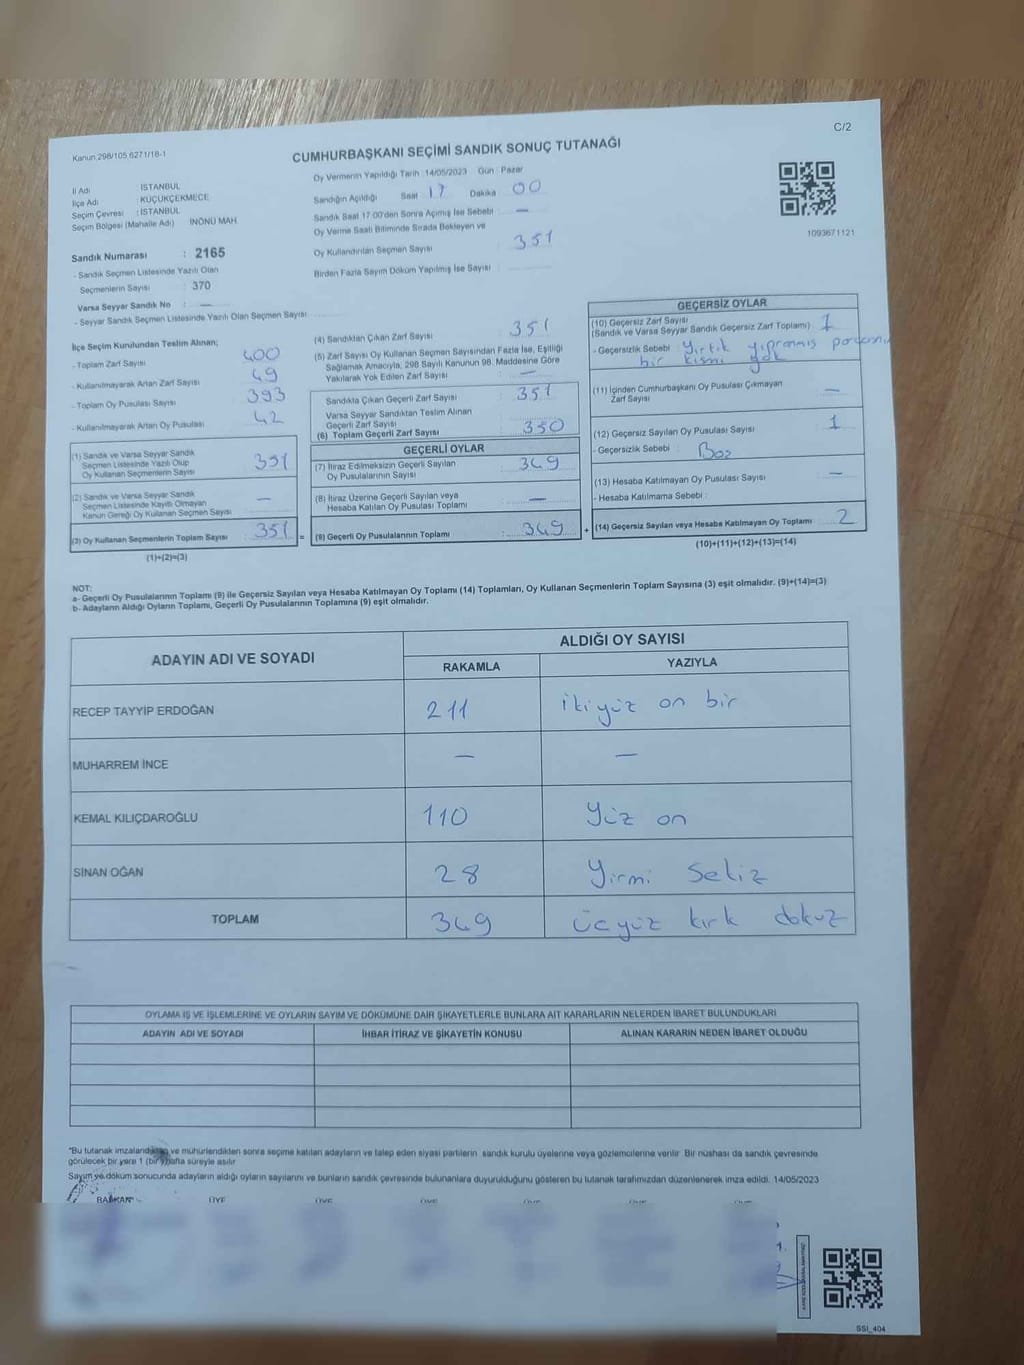 C/2
Kanun 298/105 6271/18-1
CUMHURBAŞKANI SEÇİMİ SANDIK SONUÇ TUTANAĞI
İl Adı İSTANBUL
İlçe Adı KÜÇÜKÇEKMECE
Seçim Çevresi : İSTANBUL
Seçim Bölgesi (Mahalle Adı) İNÖNÜ MAH
Sandık Numarası : 2165
- Sandık Seçmen Listesinde Yazılı Olan
Seçmenlerin Sayısı : 370
Varsa Seyyar Sandık No : —
- Seyyar Sandık Seçmen Listesinde Yazılı Olan Seçmen Sayısı
Oy Vermenin Yapıldığı Tarih :14/05/2023 Gün : Pazar
Sandığın Açıldığı Saat 17 Dakika 00
Sandık Saat 17:00'den Sonra Açmış İse Sebebi : —
Oy Verme Saati Bitiminde Sırada Bekleyen ve
Oy Kullandırılan Seçmen Sayısı : 351
Birden Fazla Sayım Döküm Yapılmış İse Sayısı :
1093671121
İlçe Seçim Kurulundan Teslim Alınan;
- Toplam Zarf Sayısı 400
- Kullanılmayarak Artan Zarf Sayısı 49
- Toplam Oy Pusulası Sayısı 393
- Kullanılmayarak Artan Oy Pusulası 42
(1) Sandık ve Varsa Seyyar Sandık
Seçmen Listesinde Yazılı Olup
Oy Kullanan Seçmenlerin Sayısı 351
(2) Sandık ve Varsa Seyyar Sandık
Seçmen Listesinde Kayıtlı Olmayan
Kanun Gereği Oy Kullanan Seçmen Sayısı —
(3) Oy Kullanan Seçmenlerin Toplam Sayısı 351 =
(1)+(2)=(3)
(4) Sandıktan Çıkan Zarf Sayısı : 351
(5) Zarf Sayısı Oy Kullanan Seçmen Sayısından Fazla İse, Eşitliği
Sağlamak Amacıyla, 298 Sayılı Kanunun 98. Maddesine Göre
Yakılarak Yok Edilen Zarf Sayısı : —
Sandıkta Çıkan Geçerli Zarf Sayısı : 351
Varsa Seyyar Sandıktan Teslim Alınan
Geçerli Zarf Sayısı
(6) Toplam Geçerli Zarf Sayısı : 350
GEÇERLİ OYLAR
(7) İtiraz Edilmeksizin Geçerli Sayılan
Oy Pusulalarının Sayısı : 349
(8) İtiraz Üzerine Geçerli Sayılan veya
Hesaba Katılan Oy Pusulası Toplamı : —
(9) Geçerli Oy Pusulalarının Toplamı : 349 +
GEÇERSİZ OYLAR
(10) Geçersiz Zarf Sayısı
(Sandık ve Varsa Seyyar Sandık Geçersiz Zarf Toplamı) : 1
- Geçersizlik Sebebi : Yırtık yıpranmış parçasının
bir kısmı yok
(11) İçinden Cumhurbaşkanı Oy Pusulası Çıkmayan
Zarf Sayısı —
(12) Geçersiz Sayılan Oy Pusulası Sayısı : 1
- Geçersizlik Sebebi : Boş
(13) Hesaba Katılmayan Oy Pusulası Sayısı : —
- Hesaba Katılmama Sebebi :
(14) Geçersiz Sayılan veya Hesaba Katılmayan Oy Toplamı : 2
(10)+(11)+(12)+(13)=(14)
NOT:
a- Geçerli Oy Pusulalarının Toplamı (9) ile Geçersiz Sayılan veya Hesaba Katılmayan Oy Toplamı (14) Toplamları, Oy Kullanan Seçmenlerin Toplam Sayısına (3) eşit olmalıdır. (9)+(14)=(3)
b- Adayların Aldığı Oyların Toplamı, Geçerli Oy Pusulalarının Toplamına (9) eşit olmalıdır.
ADAYIN ADI VE SOYADI ALDIĞI OY SAYISI
RAKAMLA YAZIYLA
RECEP TAYYİP ERDOĞAN 211 ikiyüz on bir
MUHARREM İNCE — —
KEMAL KILIÇDAROĞLU 110 Yüz on
SİNAN OĞAN 28 Yirmi Sekiz
TOPLAM 349 Üçyüz kırk dokuz
OYLAMA İŞ VE İŞLEMLERİNE VE OYLARIN SAYIM VE DÖKÜMÜNE DAİR ŞİKAYETLERLE BUNLARA AİT KARARLARIN NELERDEN İBARET BULUNDUKLARI
ADAYIN ADI VE SOYADI İHBAR İTİRAZ VE ŞİKAYETİN KONUSU ALINAN KARARIN NEDEN İBARET OLDUĞU
*Bu tutanak imzalandıktan ve mühürlendikten sonra seçime katılan adayların ve talep eden siyasi partilerin sandık kurulu üyelerine veya gözlemcilerine verilir. Bir nüshası da sandık çevresinde
görülecek bir yere 1 (bir) hafta süreyle asılır
Sayım ve döküm sonucunda adayların aldığı oyların sayılarını ve bunların sandık çevresinde bulunanlara duyurulduğunu gösteren bu tutanak tarafımızdan düzenlenerek imza edildi. 14/05/2023
BAŞKAN ÜYE ÜYE ÜYE ÜYE ÜYE
SSİ_404